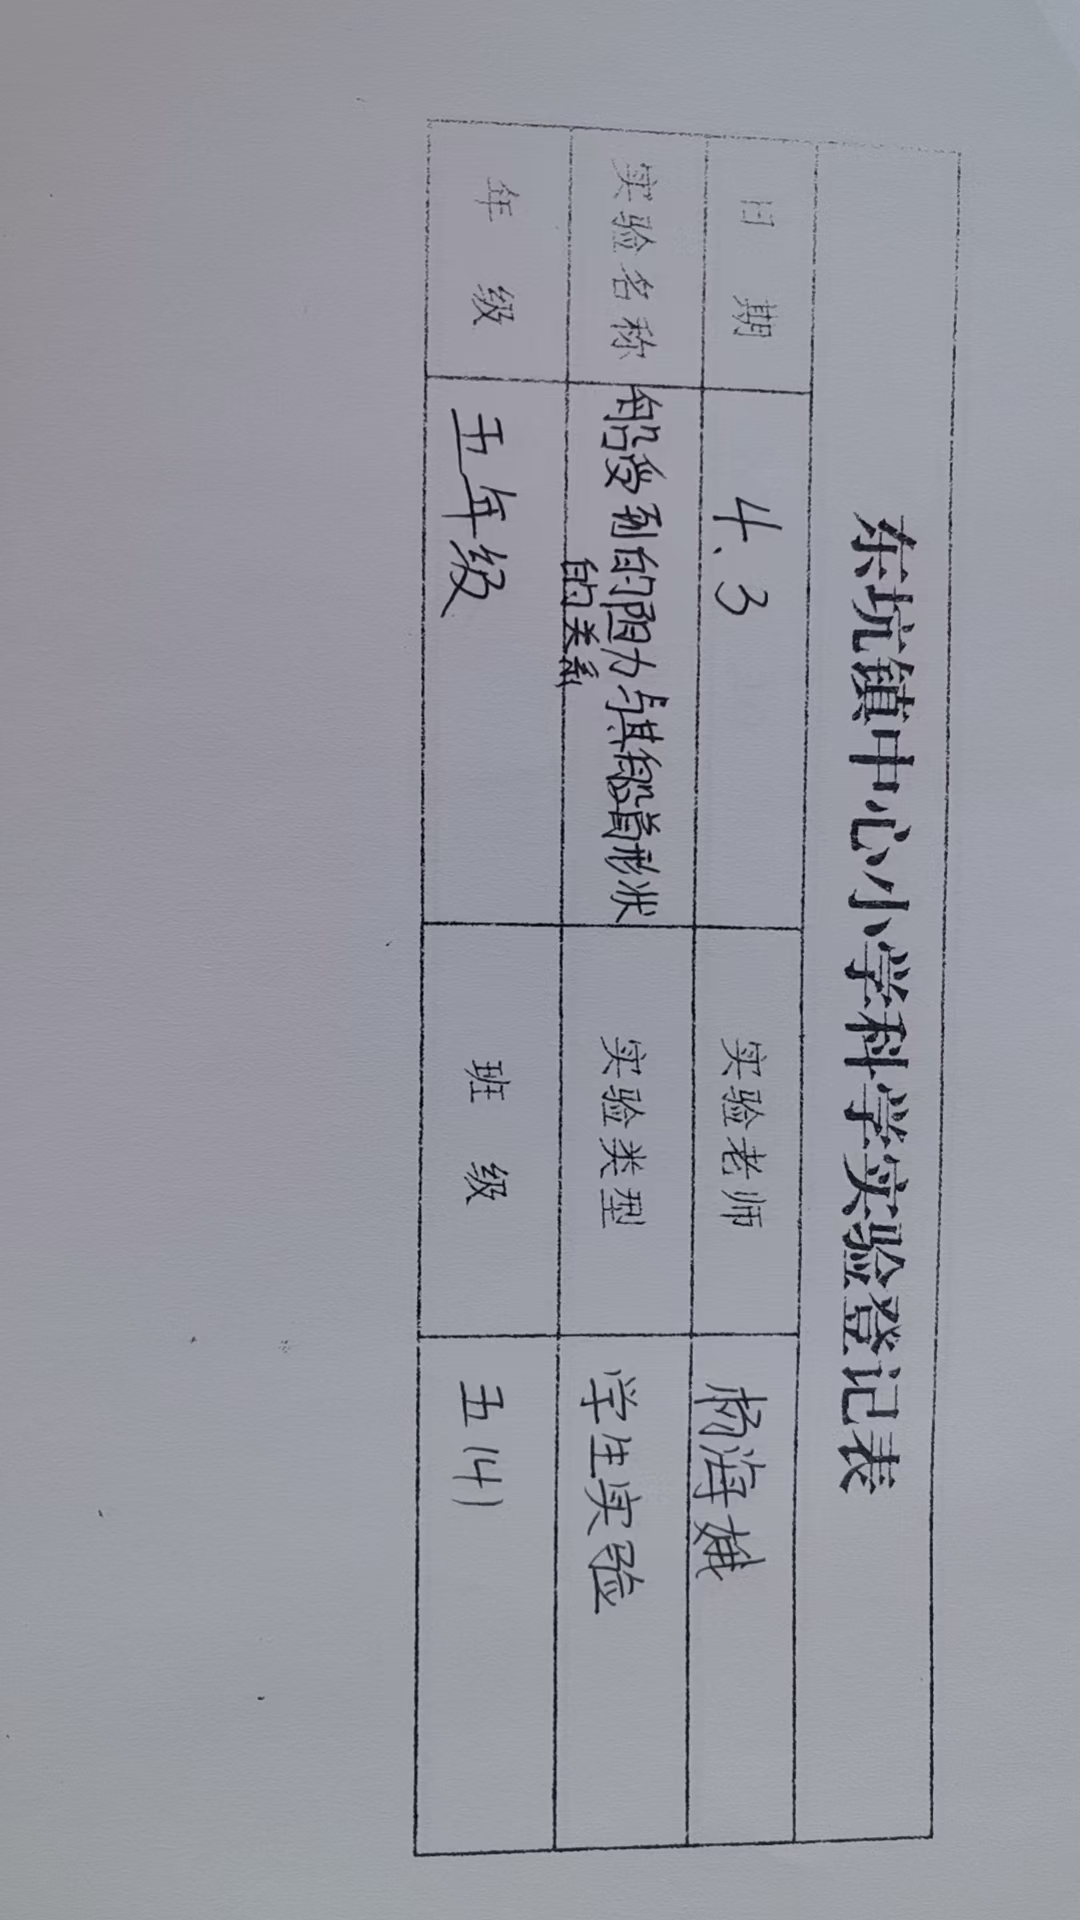 东坑镇中心小学科学实验登记表
日 期 4.3 实验老师 杨海娥
实验名称 船受到的阻力与其船首形状 实验类型 学生实验
的关系
年 级 五年级 班 级 五(4)